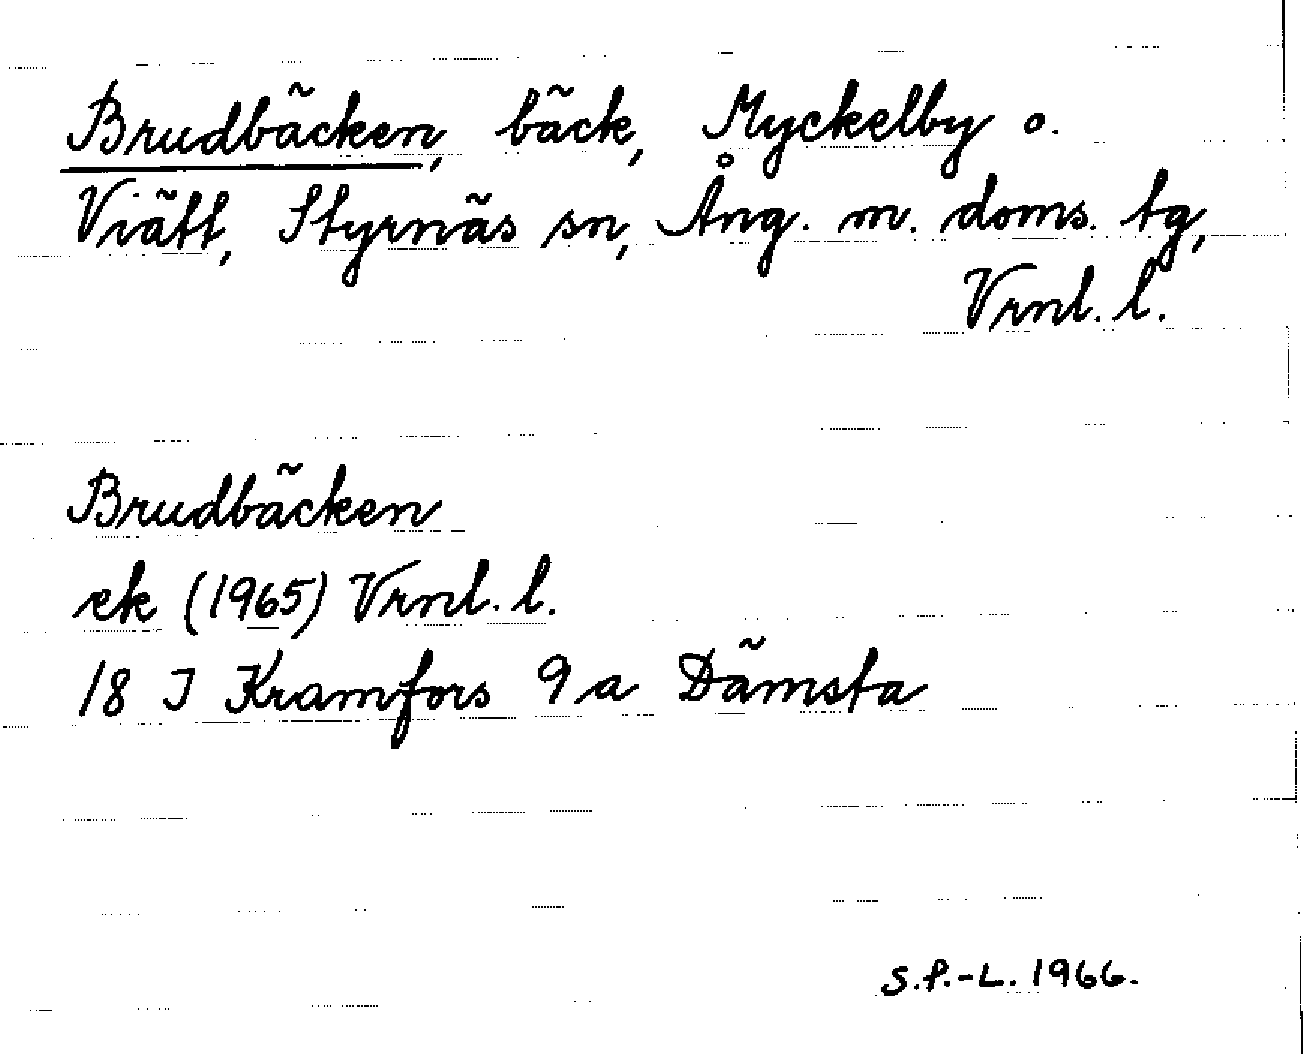 Brudbäcken, bäck, Myckelby o.
Viätt, Styrnäs sn, Ång. m. doms. tg,
Vrnl. l.
Brudbäcken
ek (1965) Vrnl. l.
18 I Kramfors 9 a Dämsta
S.P.-L. 1966.